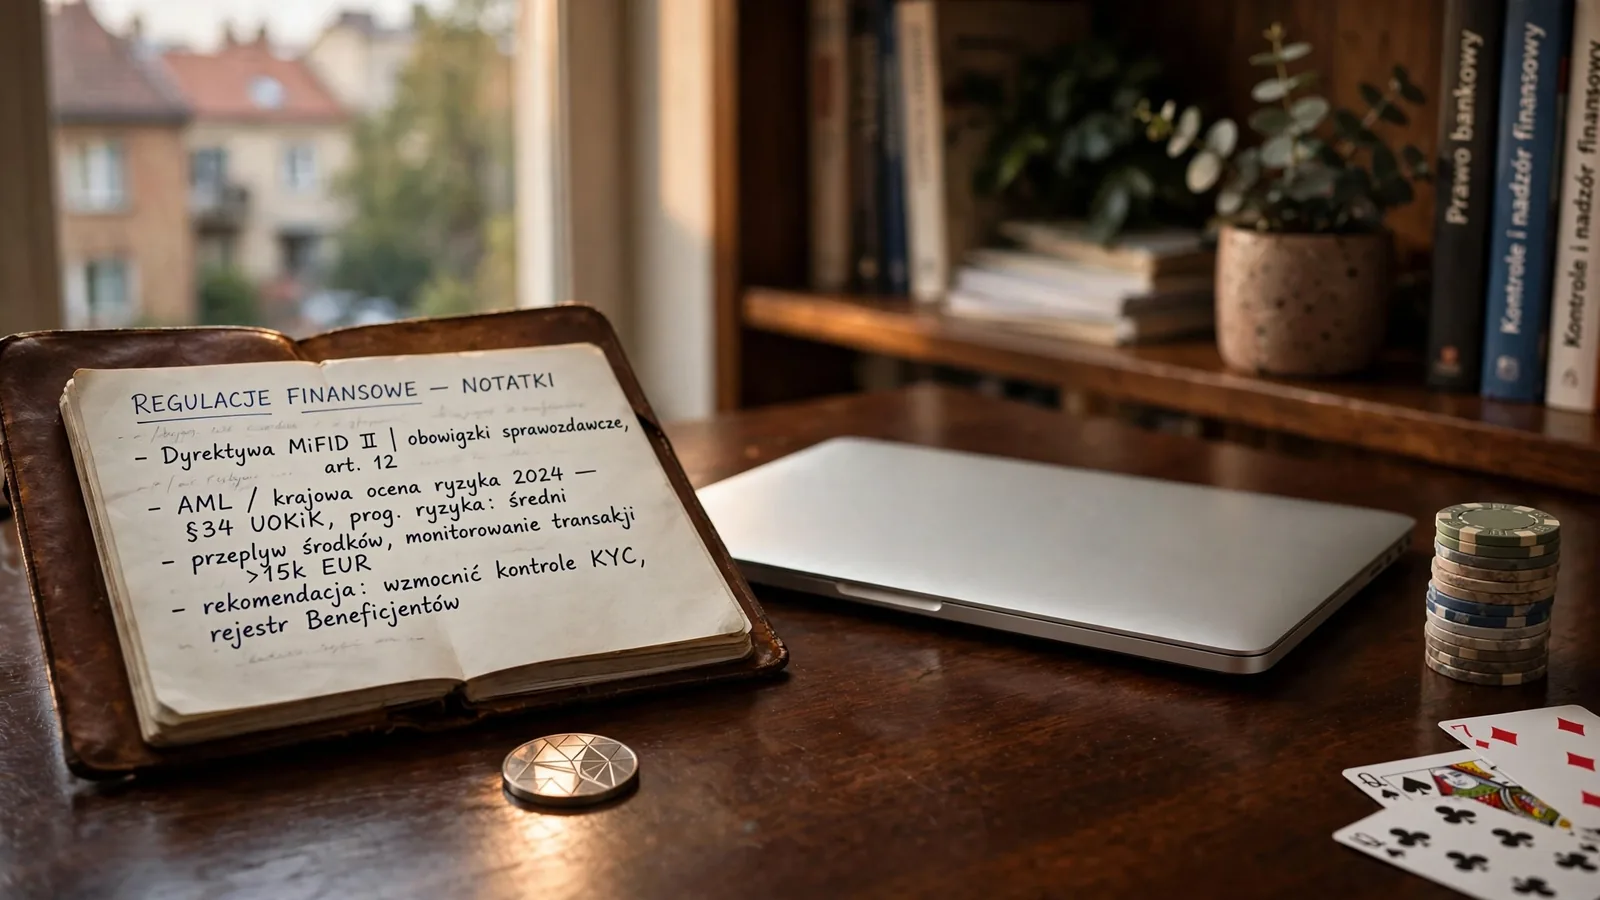 REGULACJE FINANSOWE — NOTATKI
- Dyrektywa MiFID II | obowigzki sprawozdawcze,
art. 12
- AML / krajowa ocena ryzyka 2024 —
§34 UOKiK, prog. ryzyka: średni
- przeplyw środków, monitorowanie transakji
>15k EUR
- rekomendacja: wzmocnić kontrole KYC,
rejestr Beneficjentów
Prawo bankowy
Kontrole i nadzór finansowy
Kontrole i nadzór finansowy
7
Q
8